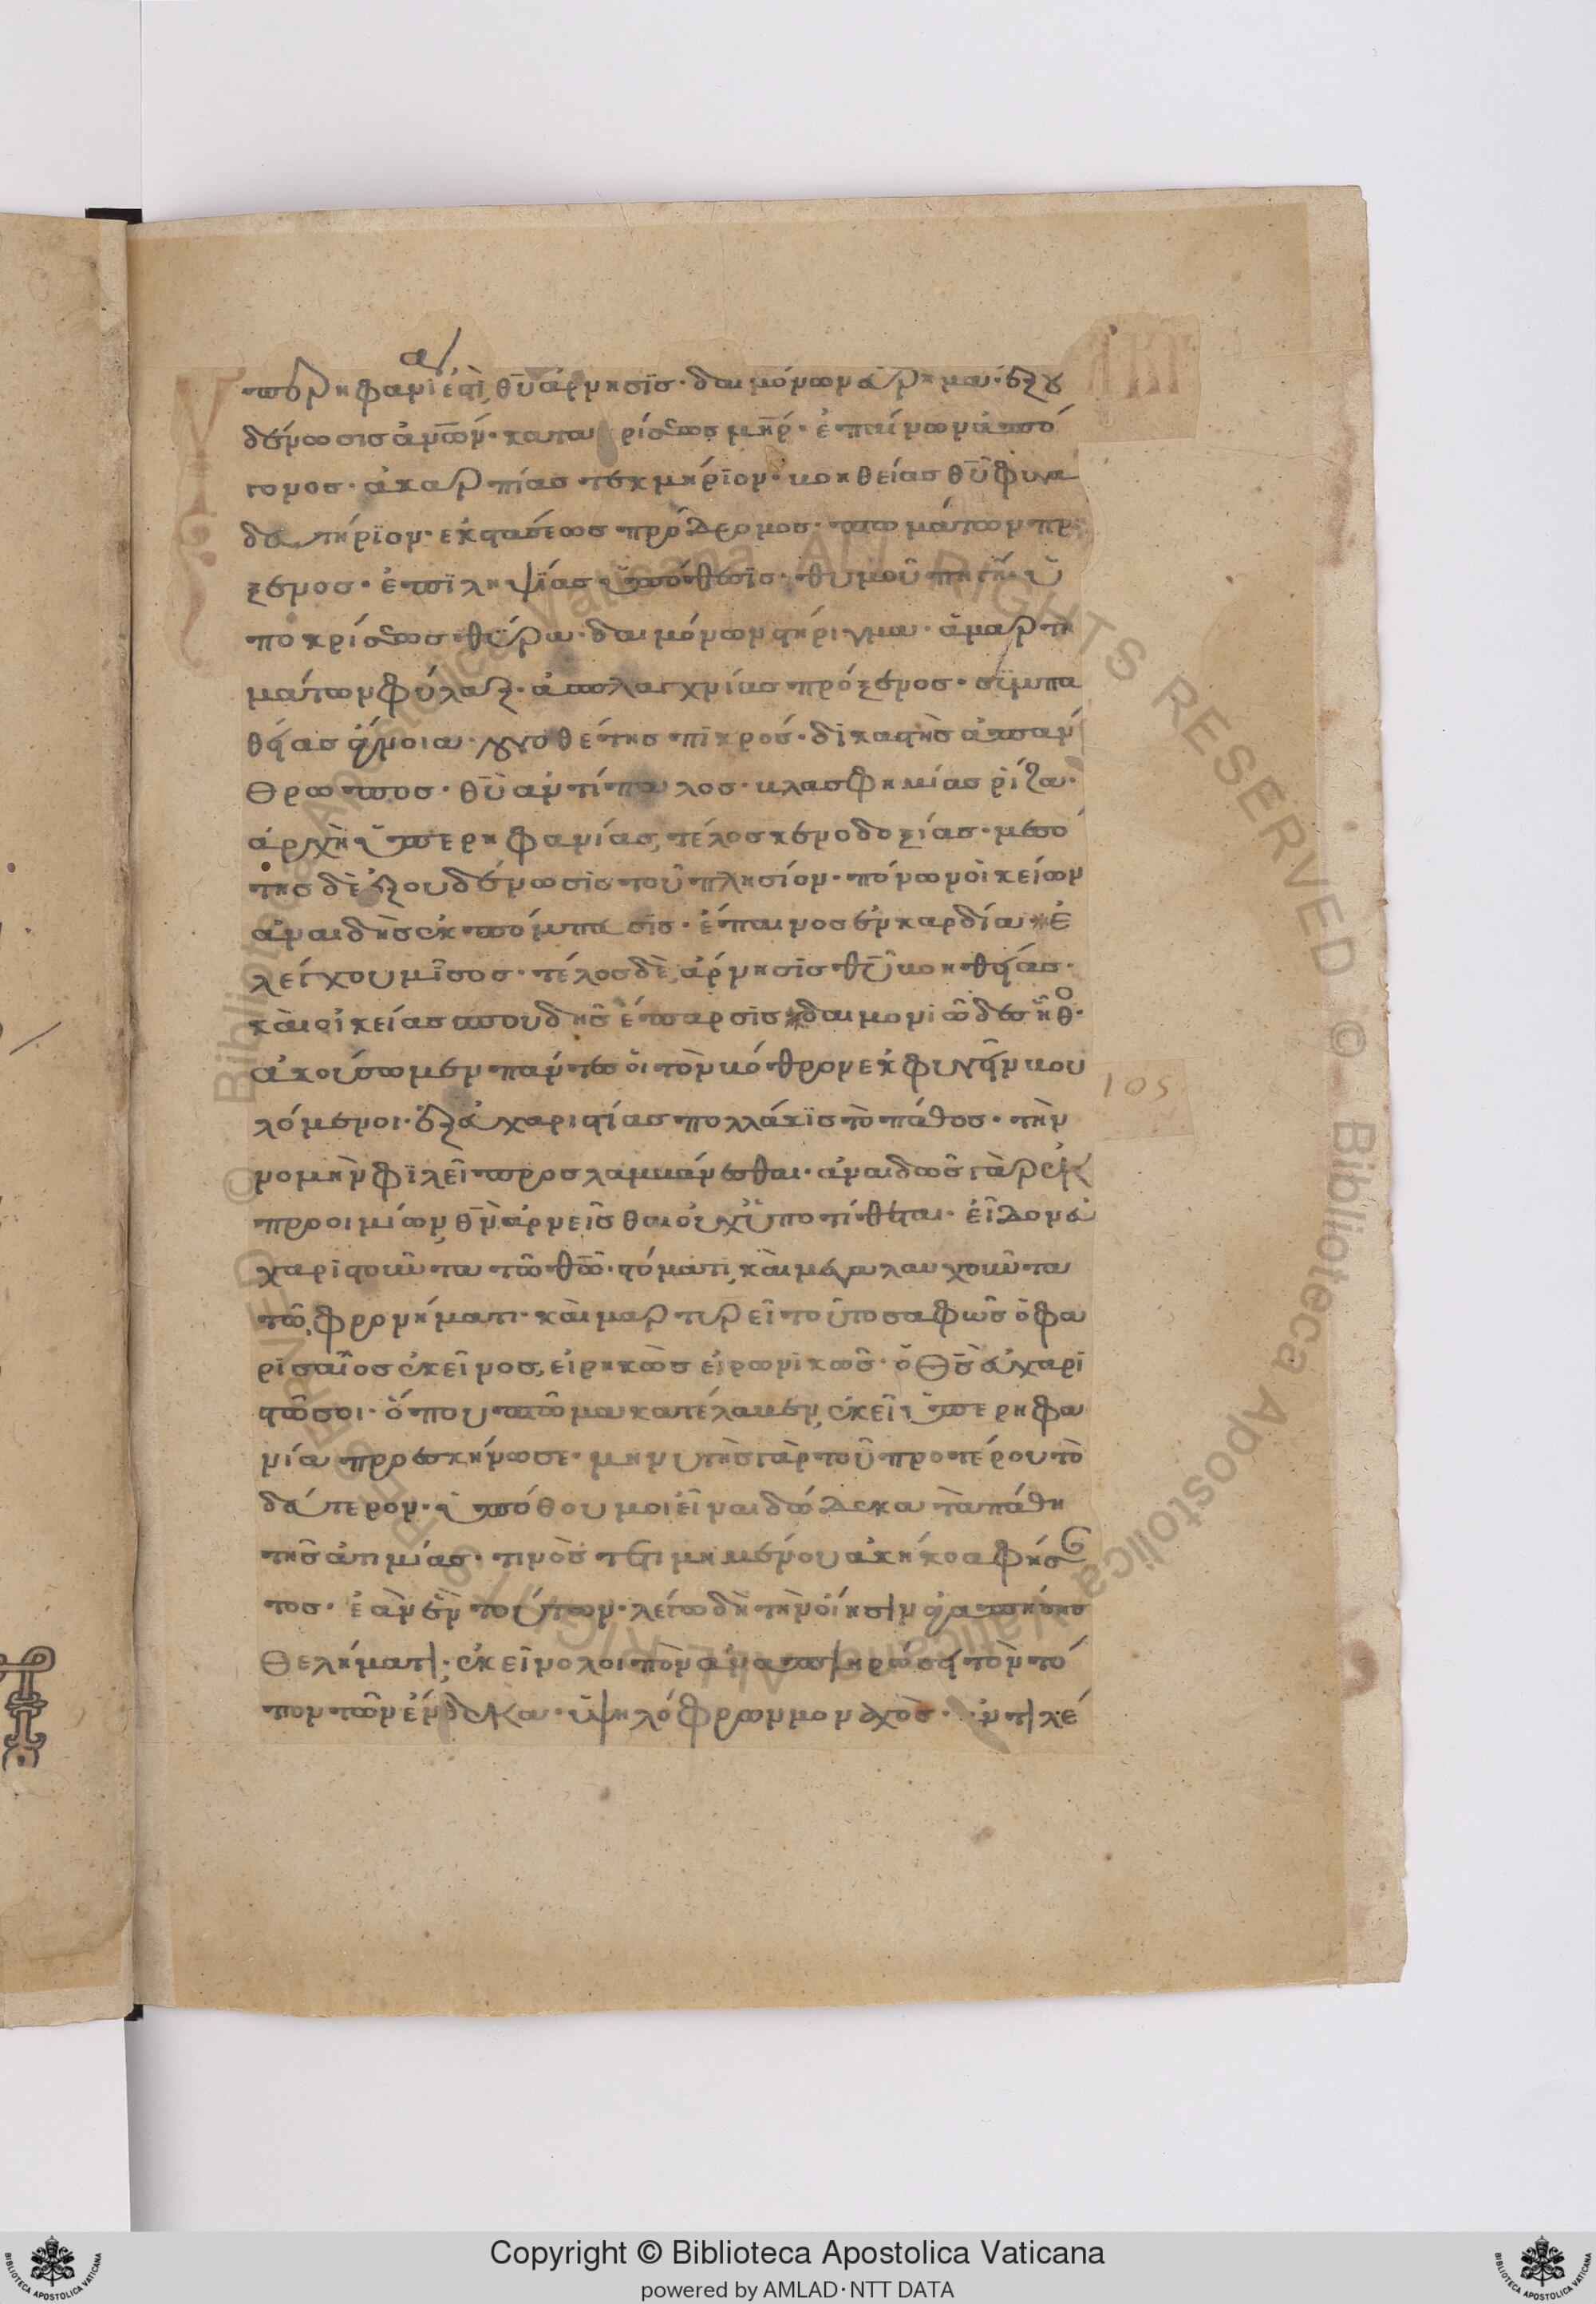 Ὑπερηφανί ἐστὶ θυ ἄρνησις· δαιμόνων εὕρημα· ἐξου
δένωσις ἀνων· κατακρίσεως μηρ· ἐπαίνων ἀπό
γονος· ἀκαρπίας τεκμήριον· βοηθείας θυ φυγα
δευτήριον· ἐκστάσεως πρόδρομος· πτωμάτων πρ
ξενος· ἐπιληψίας ὑπόθεσις· θυμοῦ πηγή· ὑ
ποκρίσεως θύρα· δαιμόνων στήριγμα· ἁμαρτη
μάτων φύλαξ· ἀσπλαγχνίας πρόξενος· συμπα
θείας ἄγνοια· λογοθέτης πικρός· δικαστὴς ἀπάν
θρωπος· θυ ἀντίπαλος· βλασφημίας ῥίζα·
ἀρχὴ ὑπερηφανίας, τέλος κενοδοξίας· μεσό
της δὲ ἐξουδένωσις τοῦ πλησίον· πόνων οἰκείων
ἀναιδὴς ἐκπόμπευσις· ἔπαινος ἐν καρδία ἐ
λέγχου μῖσος· τέλος δὲ ἄρνησις θυ βοηθείας·
καὶ οἰκείας σπουδῆς ἔπαρσις δαιμονιῶδες ἦθο·
ἀκούσωμεν πάντες οἱ τὸν βόθρον ἐκφυγεῖν βου
λόμενοι· ἐξ εὐχαριστίας πολλάκις τὸ πάθος· τὴν
νομὴν φιλεῖ προσλαμβάνεσθαι· ἀναιδῶς γὰρ ἐκ
προοιμίων θν ἀρνεῖσθαι οὐχ ὑποτίθεται· εἶδον εὐ
χαριστοῦντα τῶ θω στόματι, καὶ μεγαλαυχοῦντα
τῶ φρονήματι· καὶ μαρτυρεῖ τοῦτο σαφῶς ὁ φα
ρισαῖος ἐκεῖνος, εἰρηκὼς εἰρωνικῶς· ὁ Θς εὐχαρι
στῶ σοι· ὅπου πτῶμα κατέλαβεν, ἐκεῖ ὑπερηφα
νία προεσκήνωσε· μηνυτὴς γὰρ τοῦ προτέρου τὸ
δεύτερον· ὑπόθου μοι εἶναι δώδεκα τὰ πάθη
τῆς ἀτιμίας· τινὸς τετιμημένου ἀκήκοα φήσ
τος· ἐὰν ἓν τούτων· λέγω δὴ τὴν οἴησιν ἀγαπήσης
Θελήματι, ἐκεῖνο λοιπὸν ἀναπληρώσει τὸν τό
πον τῶν ἕνδεκα· ὑψηλόφρων μοναχὸς· ἀντιλέ
105